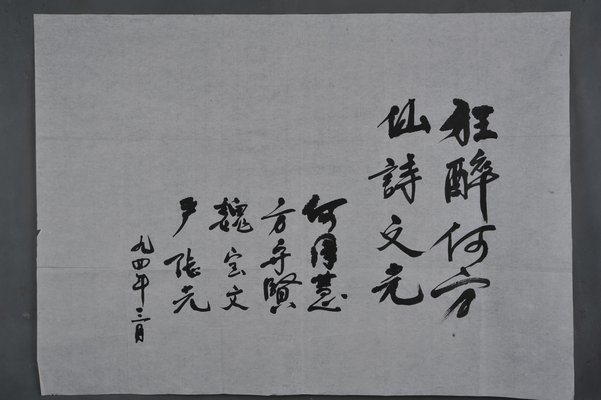 狂醉何方
仙詩文元
何泽慧
方守賢
魏宝文
尹张元
九四年三月